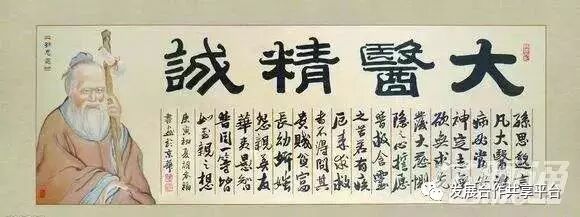 大醫精誠
孫思邈
凡大醫
病必當
神定志
欲無求
發大慈惻
隱之心誓願
普救含靈
之苦若有疾
厄來求救
者不得問其
貴賤貧富
長幼妍媸
怨親善友
華夷愚智
普同一等皆
如至親之想
庚寅初夏
於京華
发展合作共享平台